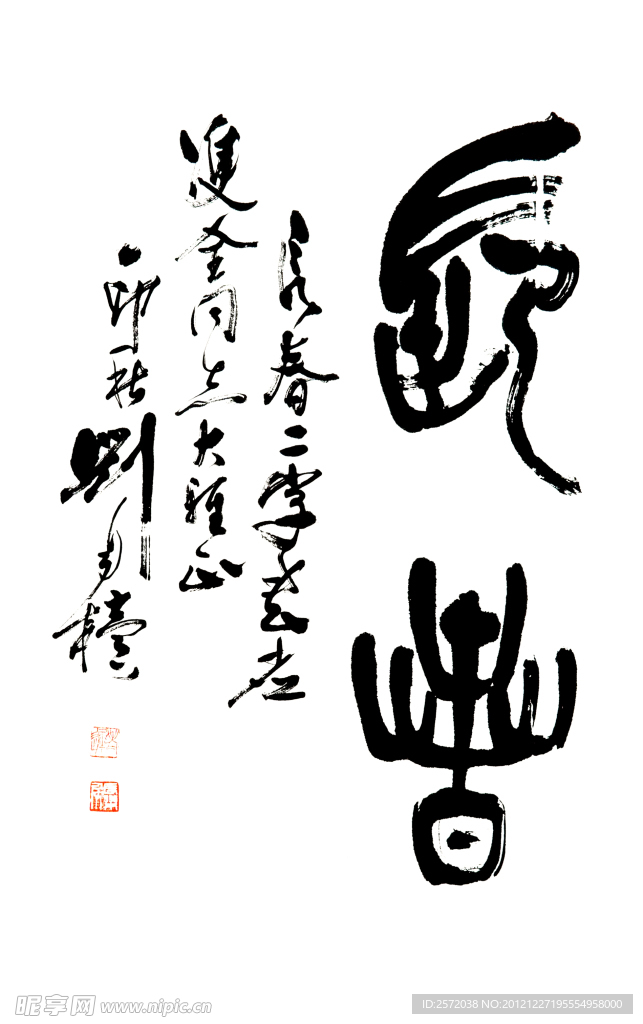 長春
長春二字書
雙全同志大雅正
卯秋劉自櫝
昵享网 www.nipic.cn
ID:2572038 NO:20121227195554958000